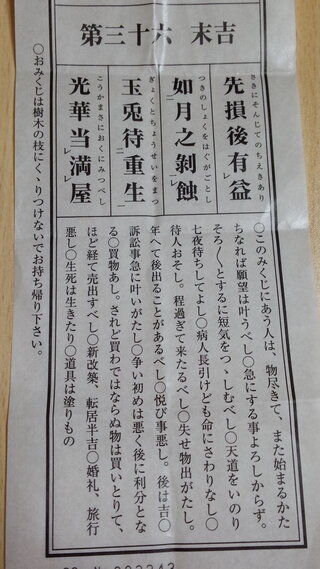 第三十六 末吉
先損後有益
さきにそんじてのちえきあり
如月之剝蝕
つきのしょくをはぐがごとし
玉兎待重生
ぎょくとちょうせいをまつ
光華当満屋
こうかまさにおくにみつべし
〇このみくじにあう人は、物尽きて、また始まるかた
ちなれば願望は叶うべし〇急にする事よろしからず。
そろ〳〵とするに短気をつゝしむべし〇天道をいのり
七夜待ちしてよし〇病人長引けども命にさわりなし〇
待人おそし。程過ぎて来たるべし〇失せ物出がたし。
年へて後出ることがあるべし〇悦び事悪し。後は吉〇
訴訟事急に叶いがたし〇争い初めは悪く後に利分とな
る〇買物あし。されど買わではならぬ物は買いとりて、
ほど経て売出すべし〇新改築、転居半吉〇婚礼、旅行
悪し〇生死は生きたり〇道具は塗りもの
〇おみくじは樹木の枝にくゝりつけないでお持ち帰り下さい。